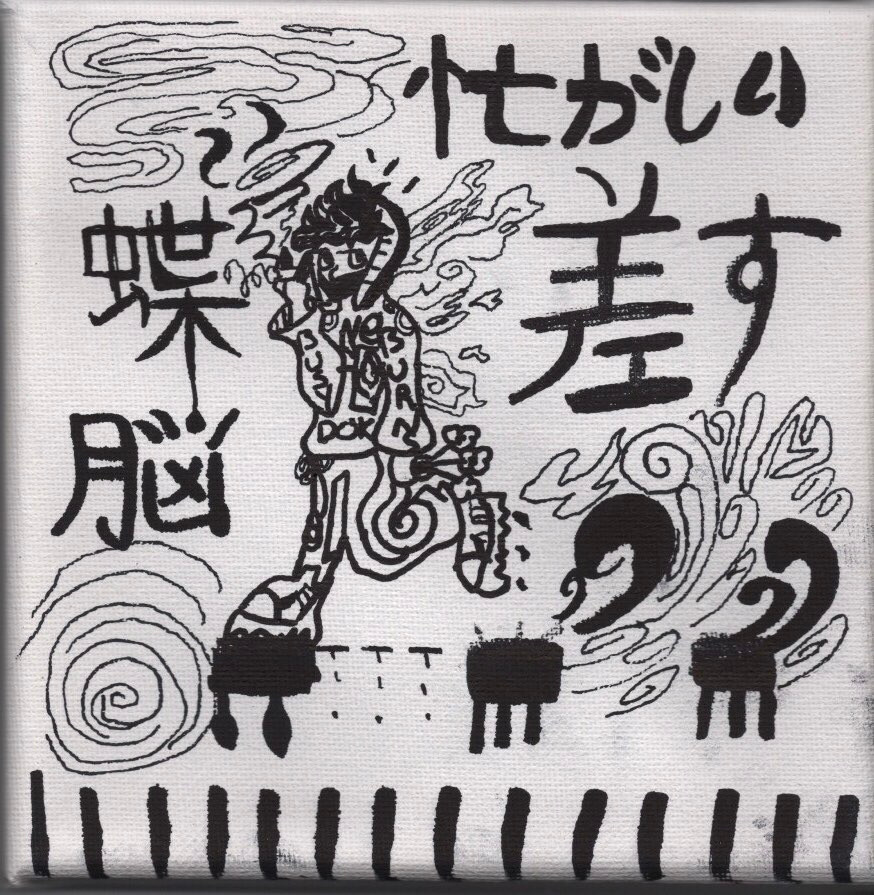 忙がしい
差す
蝶
脳
BURN
DOK